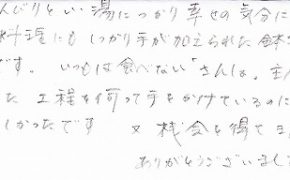 んびりといい湯につかり幸せの気分に
料理にもしっかり手が加えられた
です。いつもは食べない"さんしょ。主
た工程を伺って手をかけているのに
しかったです 又機会を得てま
ありがとうございまし